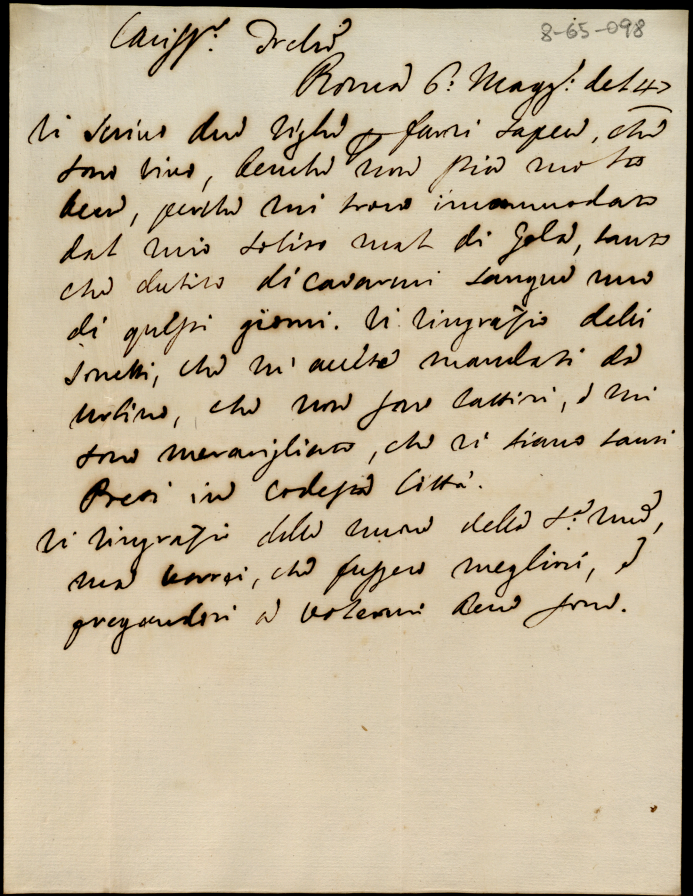 8-65-098
Cariss.º Frełło
Roma 6: Magg.º del 47
Vi scrivo due righe p farvi sapere, che
sono vivo, benche non sia molto
bene, perche mi trovo incommodato
dal mio solito mal di gola, tanto
che dubito di cavarmi sangue uno
di questi giorni. Vi ringrazio delli
sonetti, che m' avete mandati da
Urbino, che non sono cattivi, e mi
sono meravigliato, che vi siano tanti
Poeti in codesta Città.
Vi ringrazio delle nuove della S.ª
ma vorrei, che fussero migliori, e
pregandovi a volermi bene sono.